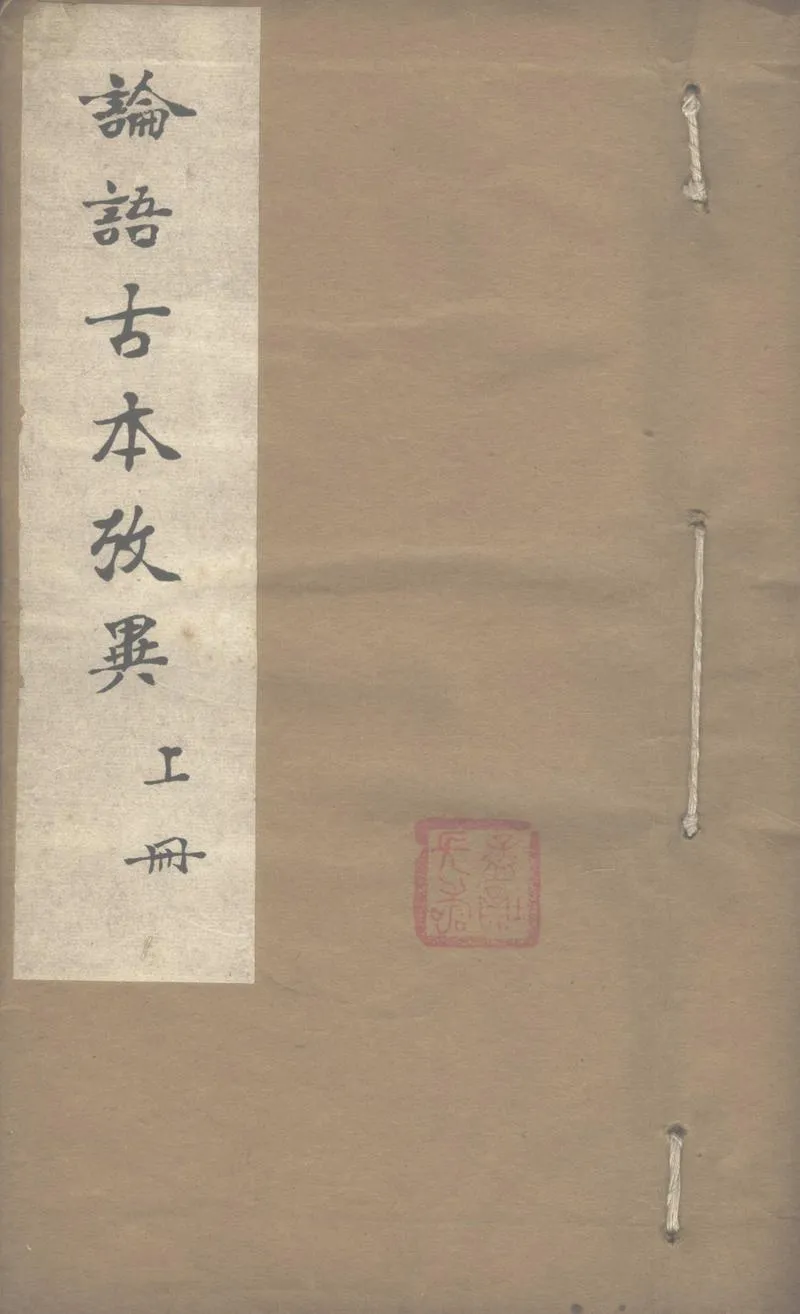 論語古本攷異
上冊